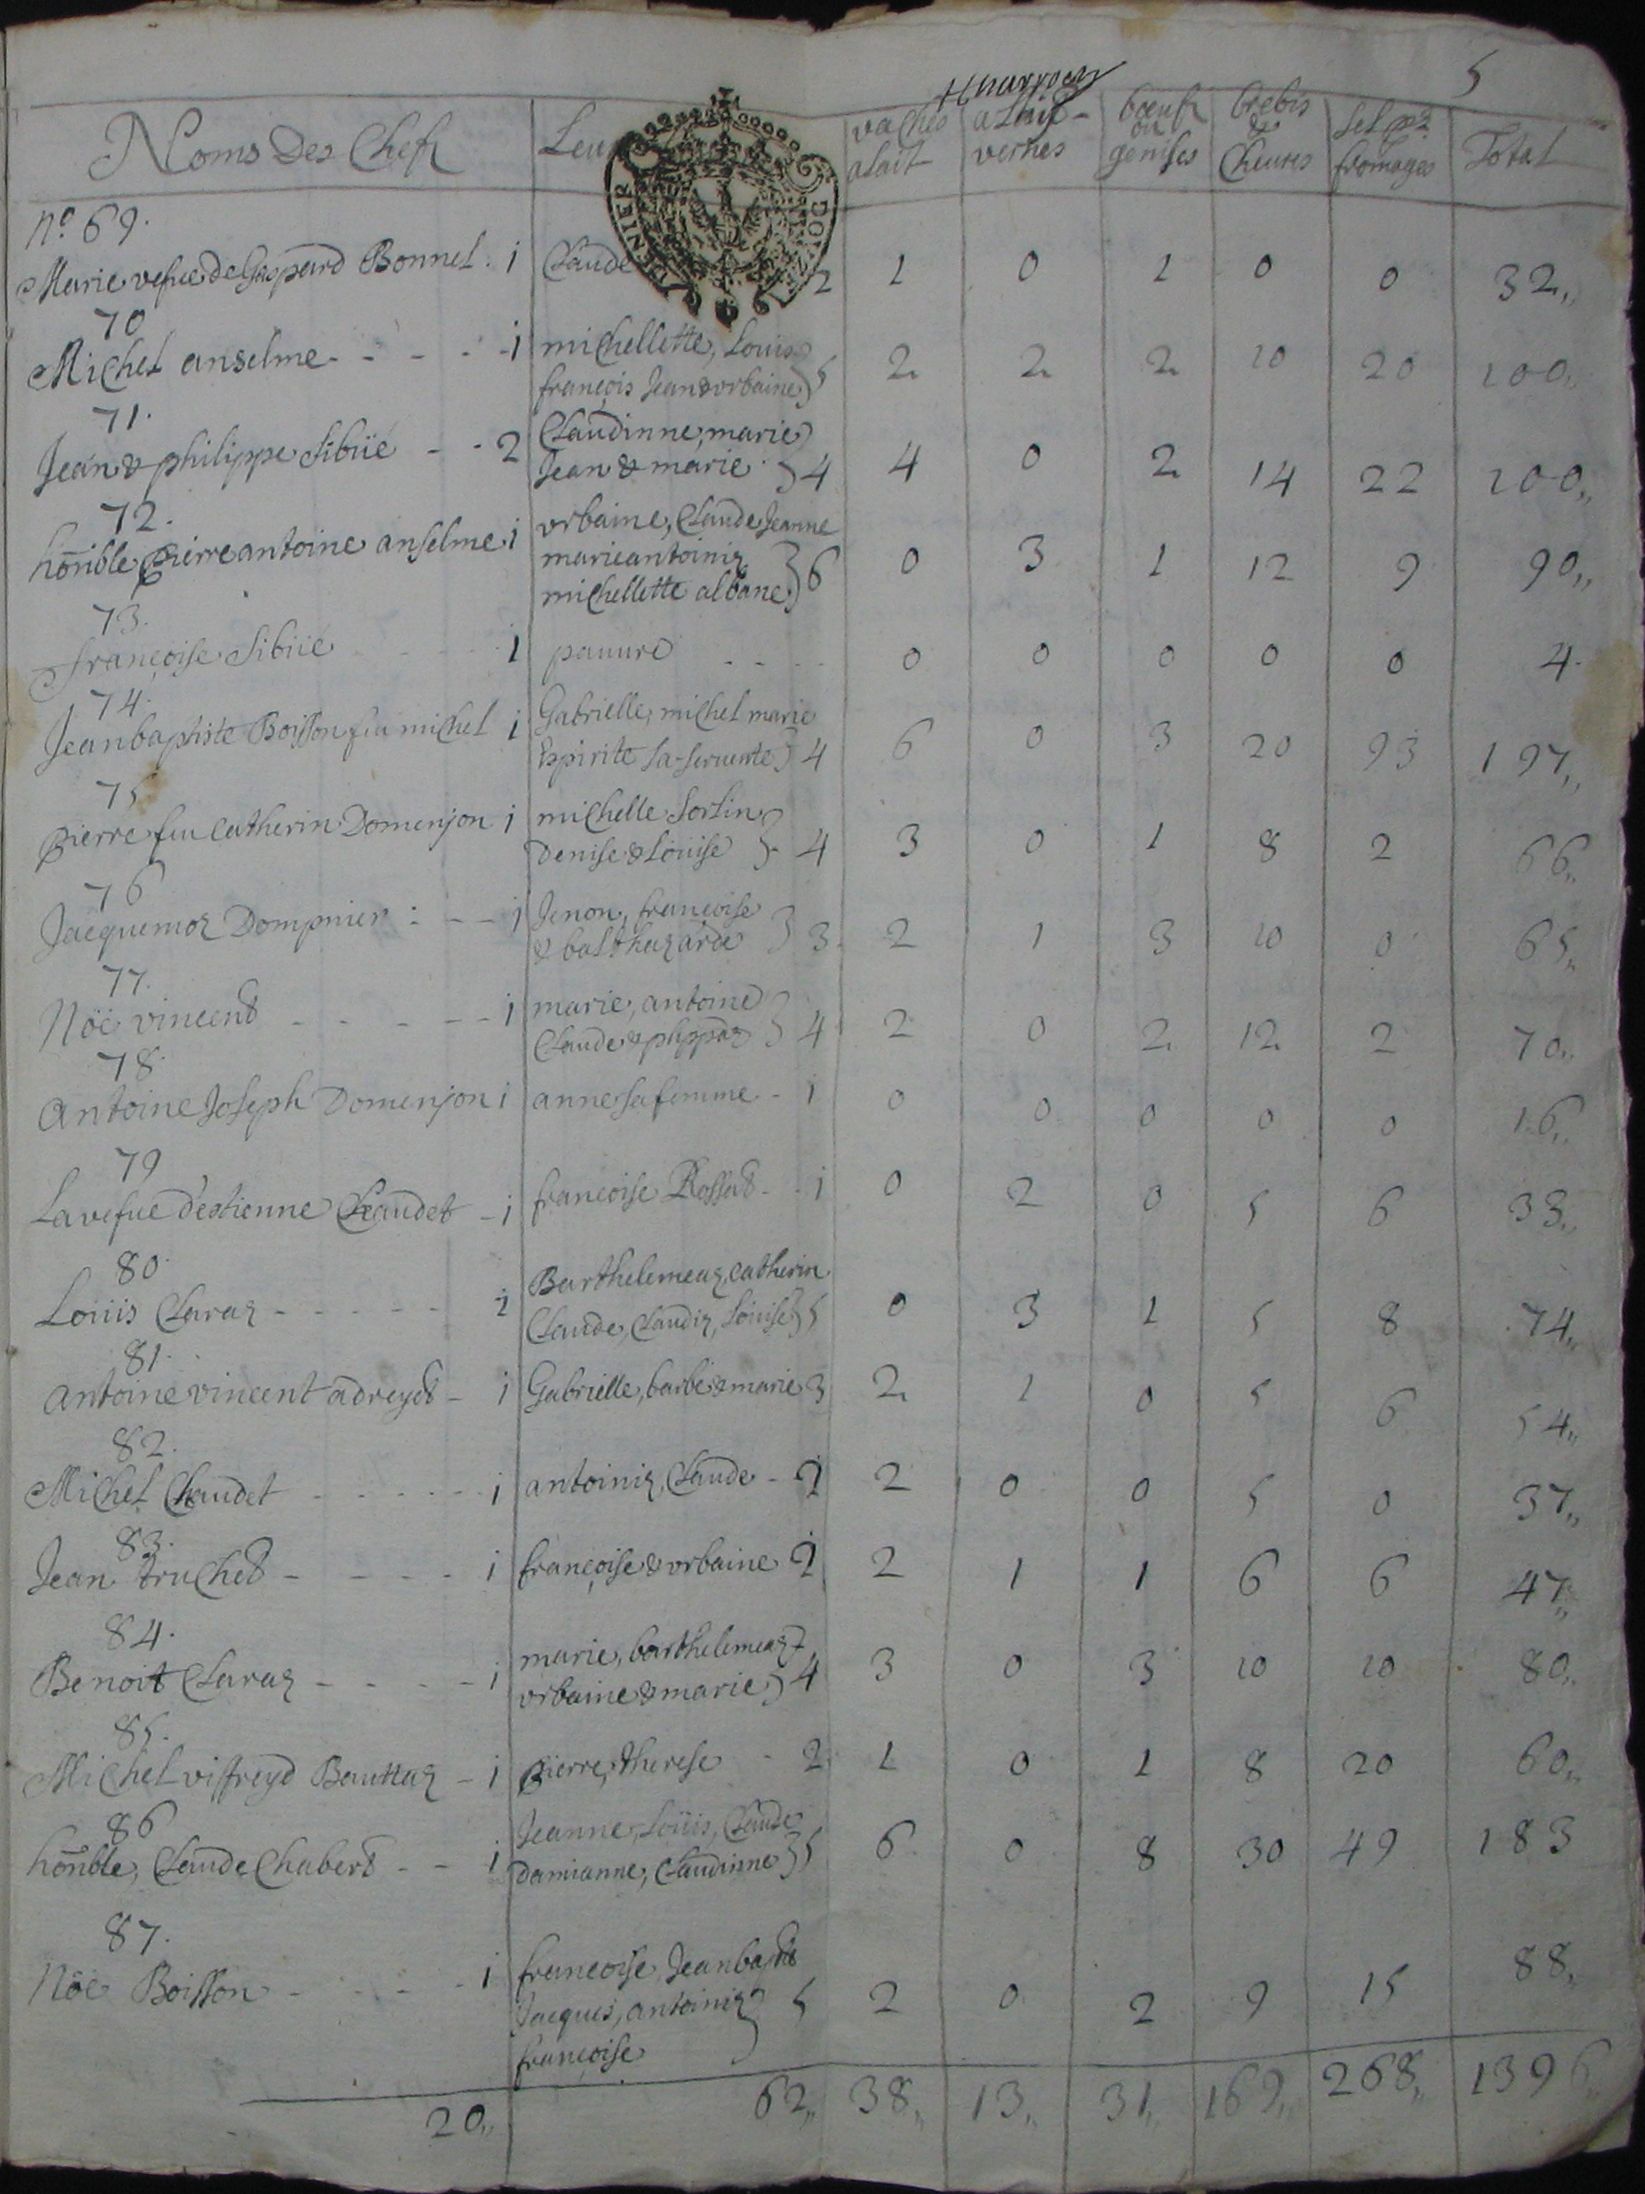 5
Noms Des Chefz Leu vaches alait alait vernes bœufz ou genises brebis & cheures sel pr fromages Total
DENIER DOUZE
No. 69.
Marie vefue de Gaspard Bonnel. 1 Claude 2 1 0 1 0 0 32,,
70
Michel anselme - - - - - 1 michellette, Louis
françois Jean & vrbaine } 5 2 2 2 10 20 100,,
71.
Jean & philippe Sibüé - - 2 Claudinne, marie
Jean & marie } 4 4 0 2 14 22 100,,
72.
honnble Pierre antoine anselme 1 vrbaine, Claude Jeanne
marie antoiniz
michellette albane } 6 0 3 1 12 9 90,,
73.
françoise Sibüé 1 pauure - - - - 0 0 0 0 0 4.
74.
Jean baptiste Boisson feu michel 1 Gabrielle, michel marie
Espirite sa seruente } 4 6 0 3 20 93 197,,
75
Pierre feu Catherin Domenjon 1 michelle Sorlin
Denise & Loüise } 4 3 0 1 8 2 66,,
76
Jacquemoz Dompnier : - - 1 Jenon, françoise
& balthazarde } 3 2 1 3 10 0 65,,
77.
Noë vincend - - - - - 1 marie, antoine
Claude & phppaz } 4 2 0 2 12 2 70,,
78.
Antoine Joseph Domenjon 1 anne sa femme - 1 0 0 0 0 0 16,,
79
La vefue d'estienne Chaudet - 1 françoise Rossat - - 1 0 2 0 5 6 33,,
80.
Loüis Claraz - - - - - 1 Barthelemeaz, catherin
Claude, Claudiz, Loüise } 5 0 3 1 5 8 74,,
81.
Antoine vincent adreyd - 1 Gabrielle, barbe & marie 3 2 1 0 5 6 54,,
82.
Michel Chaudet - - - - - - 1 antoiniz, Claude - 2 2 0 0 5 0 37,,
83.
Jean truched - - - - - 1 françoise & vrbaine 2 2 1 1 6 6 47,,
84.
Benoit Claraz - - - - - 1 marie, barthelemeaz
vrbaine & marie } 4 3 0 3 10 10 80,,
85.
Michel viffreyd Beauttaz - 1 Pierre, therese - 2 1 0 1 8 20 60,,
86
honnble, Claude Chabert - - 1 Jeanne, Loüis, Claude
Damianne, Claudinne } 5 6 0 8 30 49 183
87.
Noë Boisson - - - - - 1 françoise, Jean bapte
Jacques, antoiniz
françoise } 5 2 0 2 9 15 88,,
20,, 62,, 38,, 13,, 31,, 169,, 268,, 1396,,